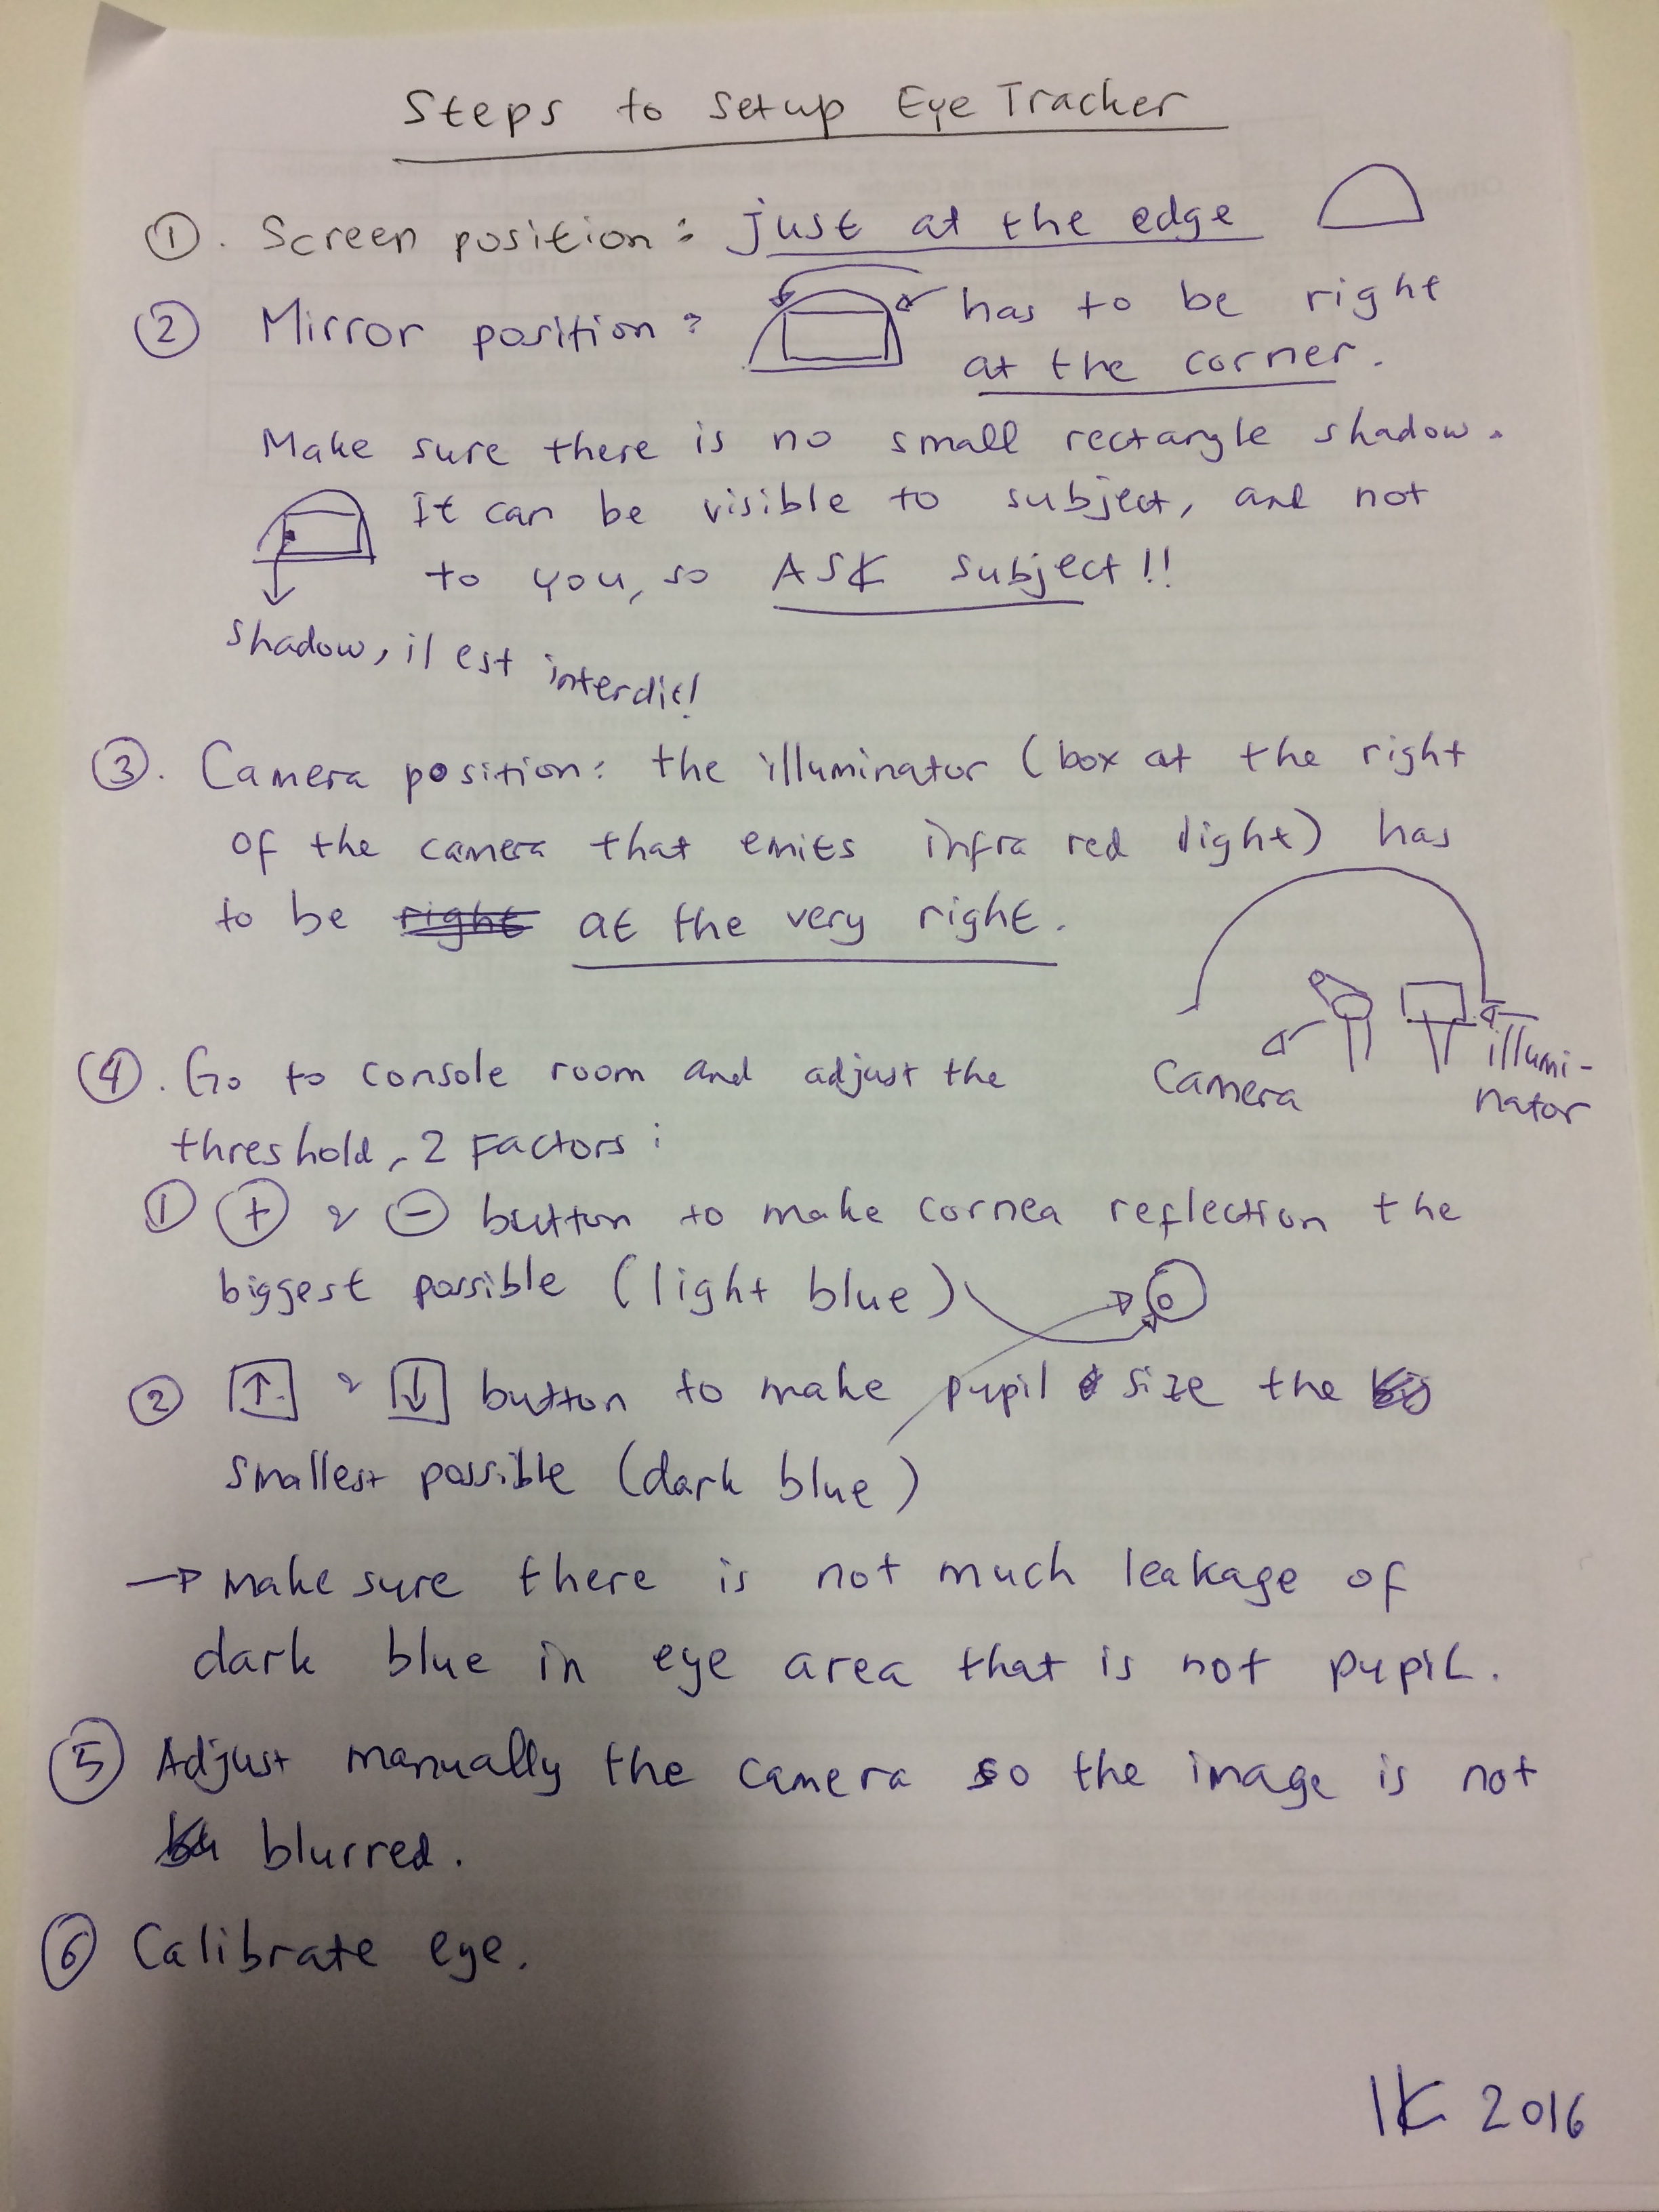 Steps to setup Eye Tracker
① . Screen position : just at the edge
② Mirror position : has to be right
at the corner .
Make sure there is no small rectangle shadow .
It can be visible to subject, and not
to you, so ASK subject !!
shadow, il est interdit!
③ . Camera position : the illuminator (box at the right
of the camera that emits infra red light) has
to be right at the very right .
Camera
illumi-
nator
④ . Go to console room and adjust the
threshold, 2 Factors :
① + & - button to make cornea reflection the
biggest possible (light blue)
② ↑ & ↓ button to make pupil size the
smallest possible (dark blue)
→ make sure there is not much leakage of
dark blue in eye area that is not pupil .
⑤ Adjust manually the camera so the image is not
blurred .
⑥ Calibrate eye .
IK 2016